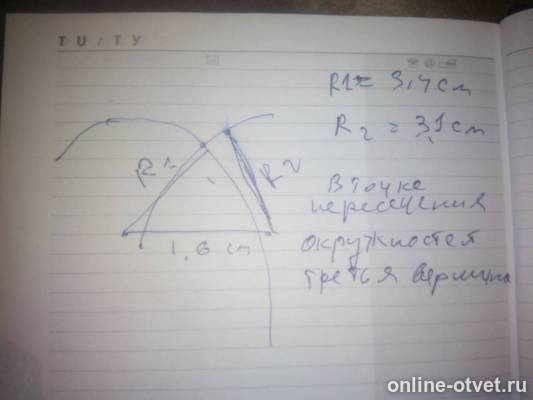 TU/TY
R1 = 3,4 см
R2 = 3,1 см
R1
R2
В точке
пересечения
1,6 cm
окружностей
третья вершина
online-otvet.ru